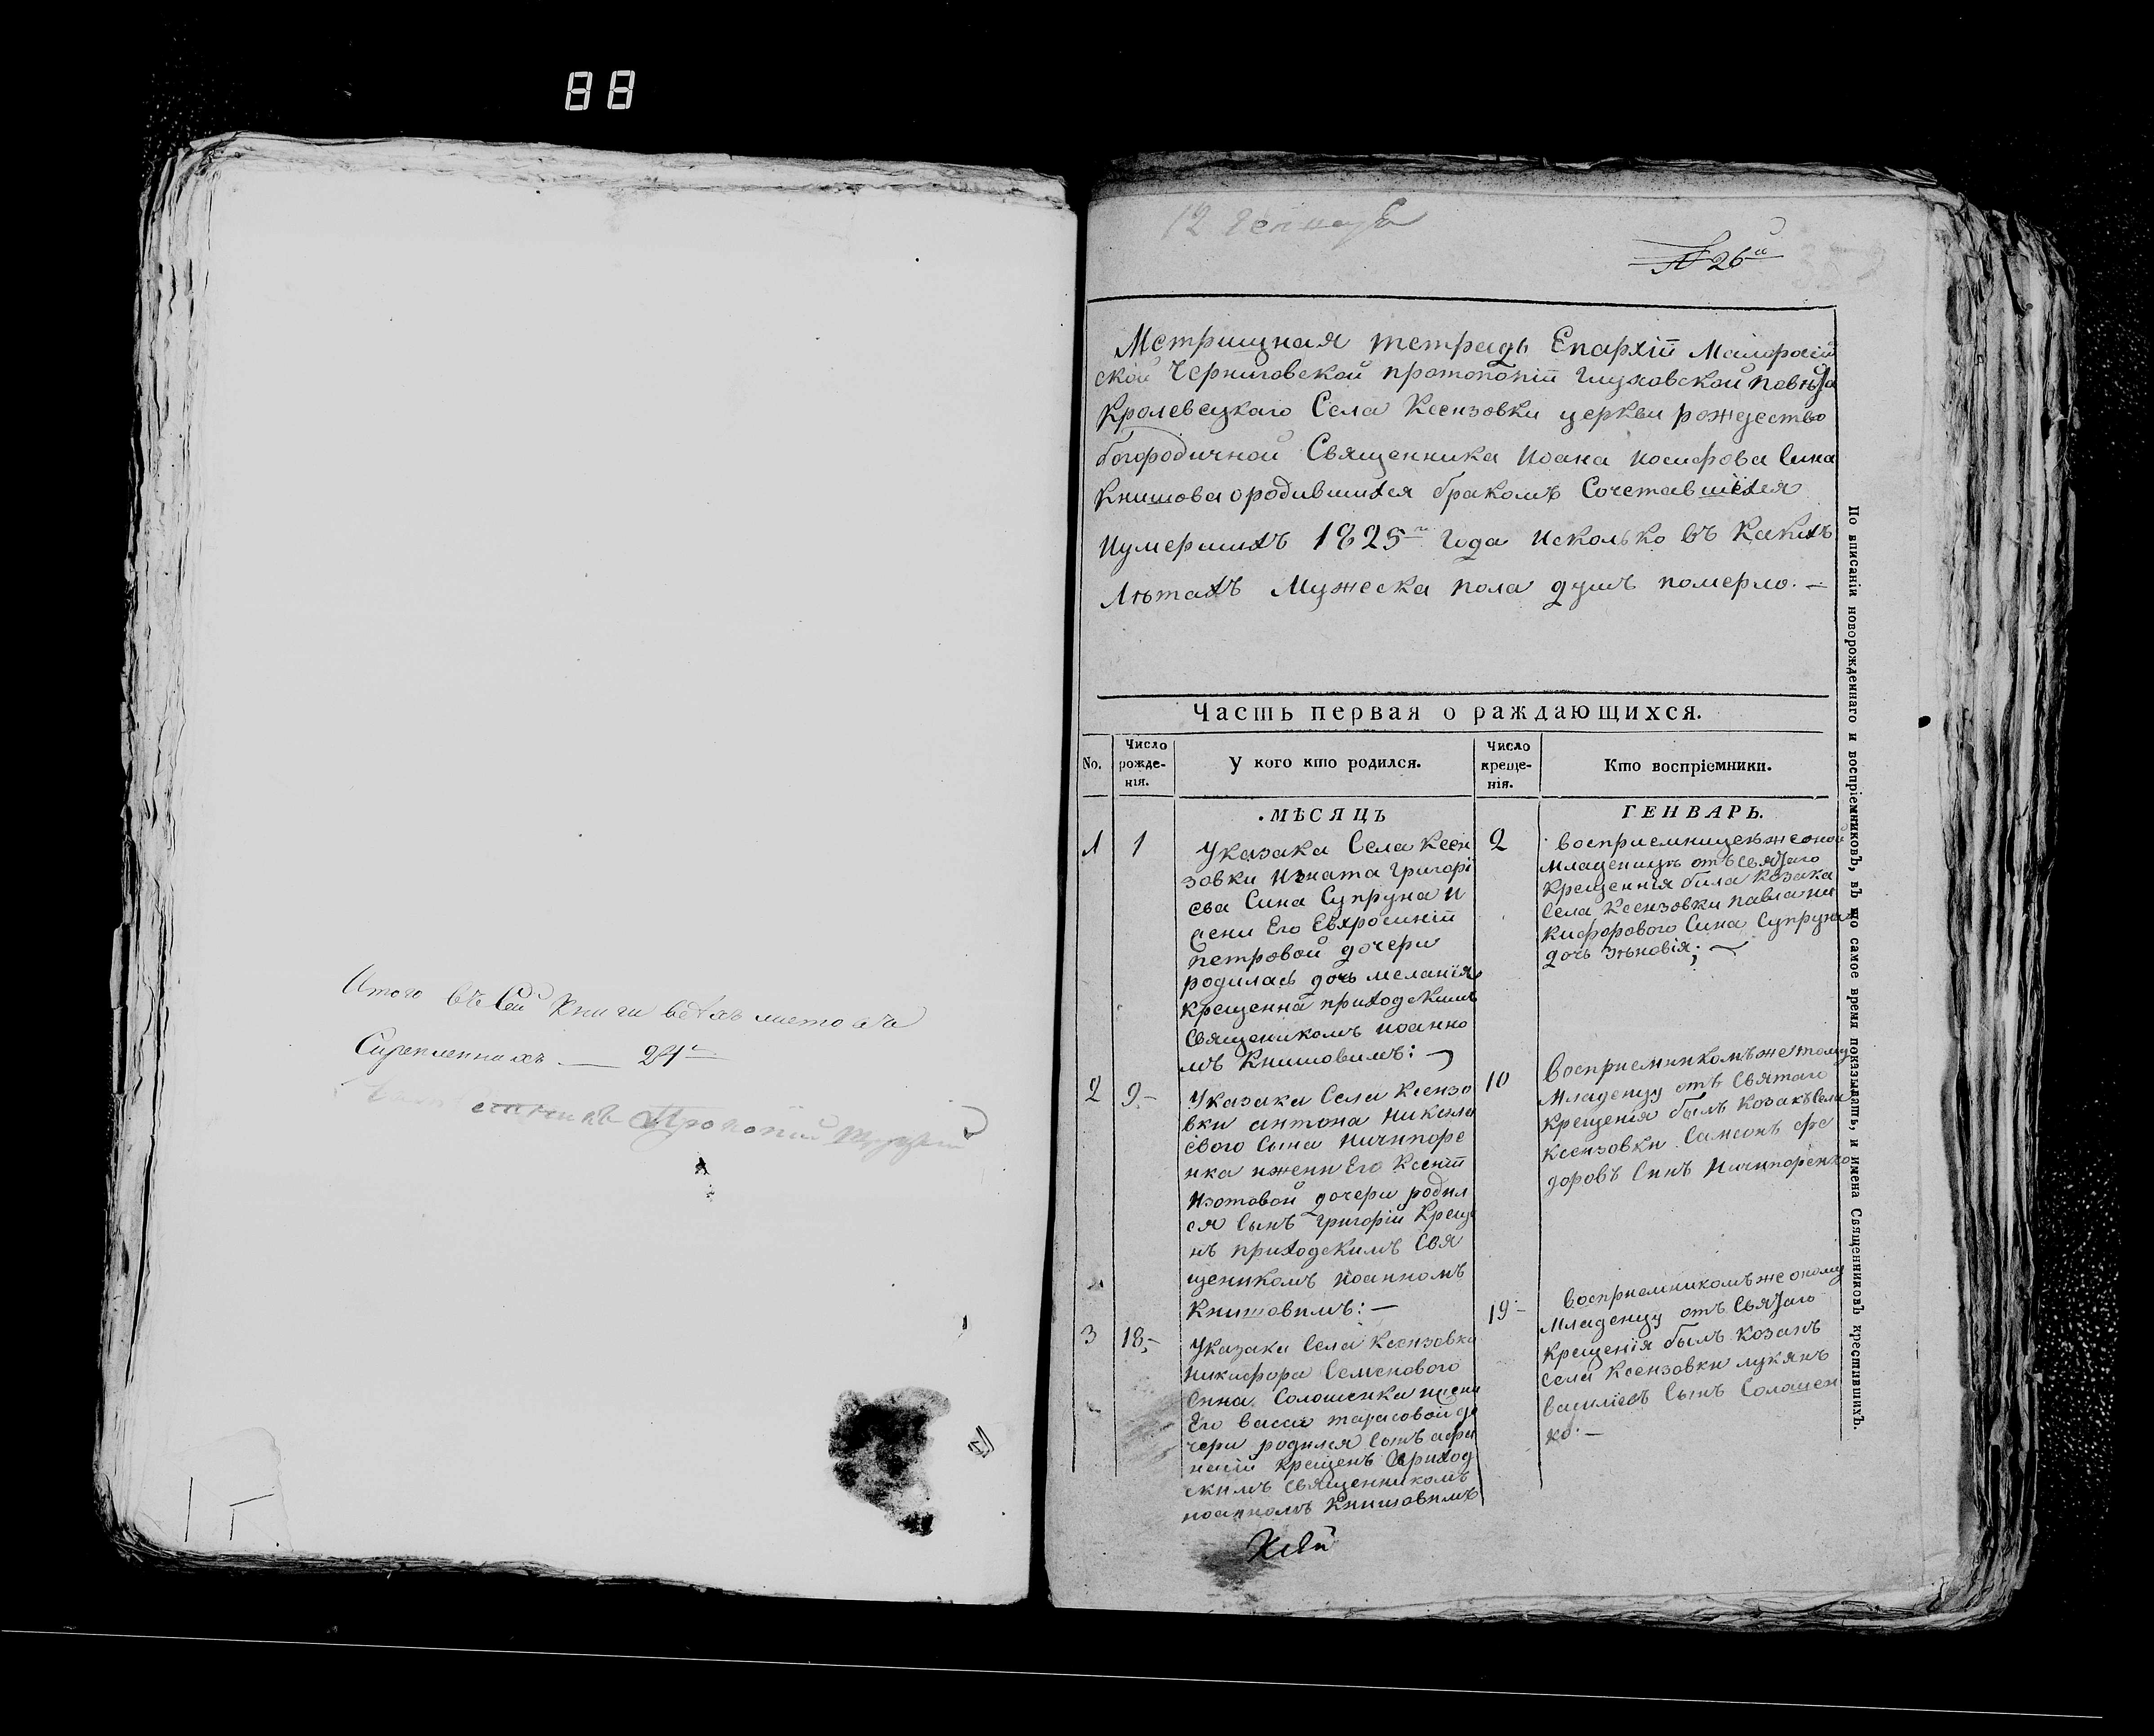 88
Итого въ сей книги всѣхъ листовъ
Скрепленныхъ — 24
12 Генваря
№ 26й
Метрищная тетрадь Епархіи Малоросій
ской Черниговской протопопіи Глуховской повѣта
Кролевецкаго Села Ксензовки церкви рождество
богородичной Священника Иоана Иосифова Сина
Книшова ородившихся бракомъ Сочетавшихся
Иумершихъ 1825 года Исколько въ Какихъ
Лѣтахъ Мужеска пола душъ померло. —
Часть первая о раждающихся.
No.
Число рожде-нія.
У кого кто родился.
Число креще-нія.
Кто воспріемники.
МѢСЯЦЪ
ГЕНВАРЬ.
1 1
Указака Села Ксен
зовки Игната Григорі
ева Сина Супруна и
жени Его Евхросиніи
петровой дочери
родилась дочь меланія
крещенна приходскимъ
священикомъ иоанно
мъ Книшовимъ: —
2
восприемницею же оной
младенцу отъ святаго
крещенія била козака
Села Ксензовки павла ни
кифорового Сина Супруна
дочь Зѣновія; —
2 9.-
Указака Села Ксензо
вки антона Никола
евого Сына Ничипоре
нка ижени Его Ксеніи
Изотовой дочери родил
ся Сынъ григорій Креще
нъ приходскимъ Свя
щеникомъ иоанномъ
Книшовимъ: —
10
Восприемникомъ же тому
Младенцу отъ Святаго
Крещенія былъ Козакъ Села
Ксензовки Самсонъ фе
доровъ Синъ Ничипоренко
3 18,-
Указака Села Ксензовки
Никифора Семенового
Сина Солошенка ижени
Его васси тарасовой до
чери родился Сынъ афа
насій крещенъ приход
скимъ священникомъ
иоанномъ Книшовимъ
19-
восприемникомъ же оному
Младенцу отъ Святаго
крещенія былъ козакъ
Села Ксензовки лукянъ
василіевъ Сынъ Солошен
ко. —
По вписаніи новорожденнаго и воспріемниковъ, въ то самое время показывать, и имена Священниковъ крестившихъ.